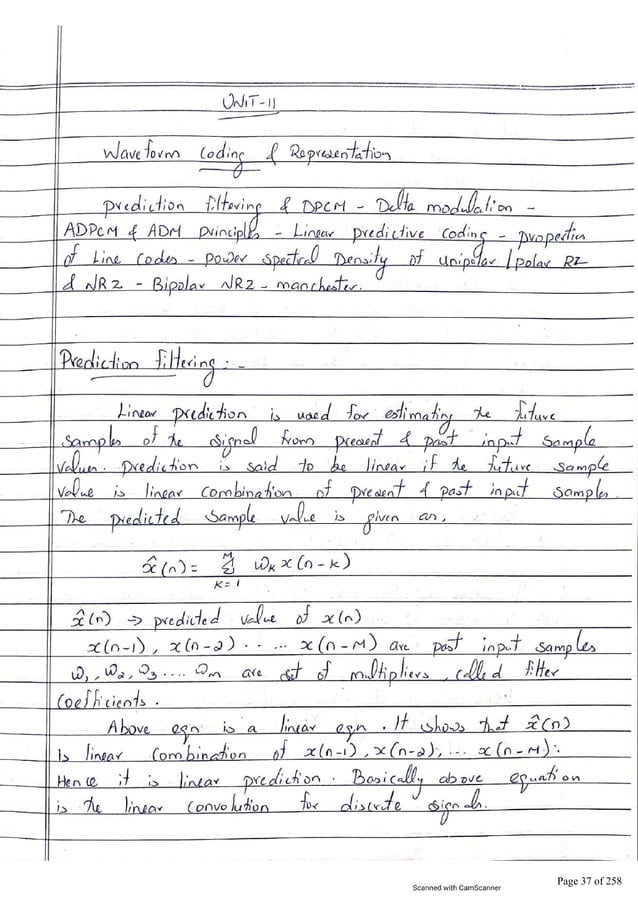 UNIT-II
Waveform Coding & Representation
prediction filtering & DPCM - Delta modulation -
ADPCM & ADM principles - Linear predictive coding - properties
of Line Codes - power Spectral Density of unipolar / polar RZ
& NRZ - Bipolar NRZ - manchester.
Prediction filtering :-
Linear prediction is used for estimating the future
samples of the signal from present & past input sample
values. Prediction is said to be linear if the future sample
value is linear combination of present & past input samples.
The predicted sample value is given as,
x̂(n) = M Σ K=1 wₖ x(n-k)
x̂(n) → predicted value of x(n)
x(n-1), x(n-2) ..... x(n-M) are past input samples
ω₁, ω₂, ω₃ .... ωm are set of multipliers, called filter
Coefficients.
Above eqn is a linear eqn. It shows that x̂(n)
is linear Combination of x(n-1), x(n-2), ... x(n-M).
Hence it is linear prediction. Basically above equation
is the linear convolution for discrete signals.
Page 37 of 258
Scanned with CamScanner